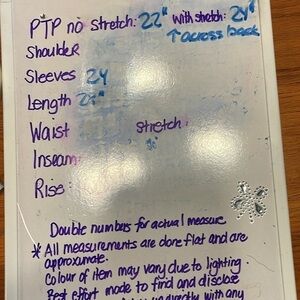 PTP no stretch: 22" with stretch: 24"
↑ across back
Shoulder
Sleeves 24
Length
Waist stretch:
Inseam
Rise:
Double numbers for actual measure
* All measurements are done flat and are
approximate.
Colour of item may vary due to lighting.
Best effort made to find and disclose
directly with any